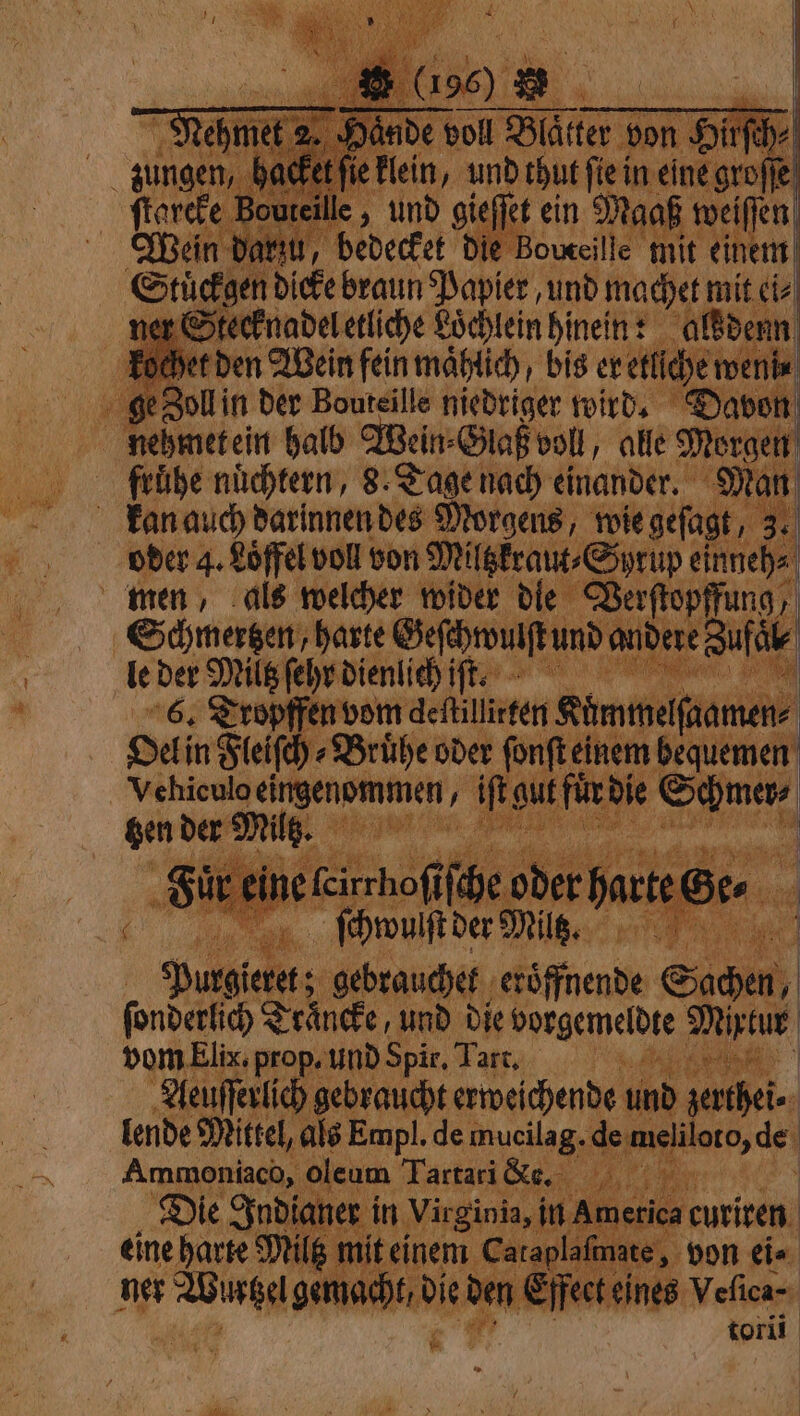 (196)
Nehmet 2. Hände voll Blätter von Hirſch⸗
zungen, hacket ſie klein, und thut ſie in eine groſſe
ſtarcke Bouteille, und gieſſet ein Maaß weiſſen
Wein darzu, bedecket die Bouteille mit einem
Stuͤckgen dicke braun Papier, und machet mit ei⸗
ner Stecknadel etliche Loͤchlein hinein: alsdenn
kochet den Wein fein maͤhlich, bis er etliche weni⸗
ge Zoll in der Bouteille niedriger wird. Davon
nehmet ein halb Wein⸗Glaß voll, alle Morgen
fruͤhe nuͤchtern, 8. Tage nach einander. Man
kan auch darinnen des Morgens, wie geſagt, 3.
oder 4. Loͤffel voll von Miltzkraut⸗Syrup einneh⸗
men, als welcher wider die Verſtopffung,
Schmertzen, harte Geſchwulſt und andere Zufaͤl⸗
le der Miltz ſehr dienlich iſt.
6. Tropffen vom deſtillirten Kuͤmmelſaamen⸗
Oel in Fleiſch⸗Bruͤhe oder ſonſt einem bequemen
Vehiculo eingenommen, iſt gut fuͤr die Schmer⸗
tzen der Miltz.
Fuͤr eine ſcirrhoſiſche oder harte Ge⸗
ſchwulſt der Miltz.
Purgieret; gebrauchet eroͤffnende Sachen,
ſonderlich Traͤncke, und die vorgemeldte Mixtur
vom Elix. prop. und Spir. Tart.
Aeuſſerlich gebraucht erweichende und zerthei⸗
lende Mittel, als Empl. de mucilag. de meliloto, de
Ammoniaco, oleum Tartari &c.
Die Indianer in Virginia, in America curiren
eine harte Miltz mit einem Cataplaſmate, von ei⸗
ner Wurtzel gemacht, die den Effect eines Veſica-
torii